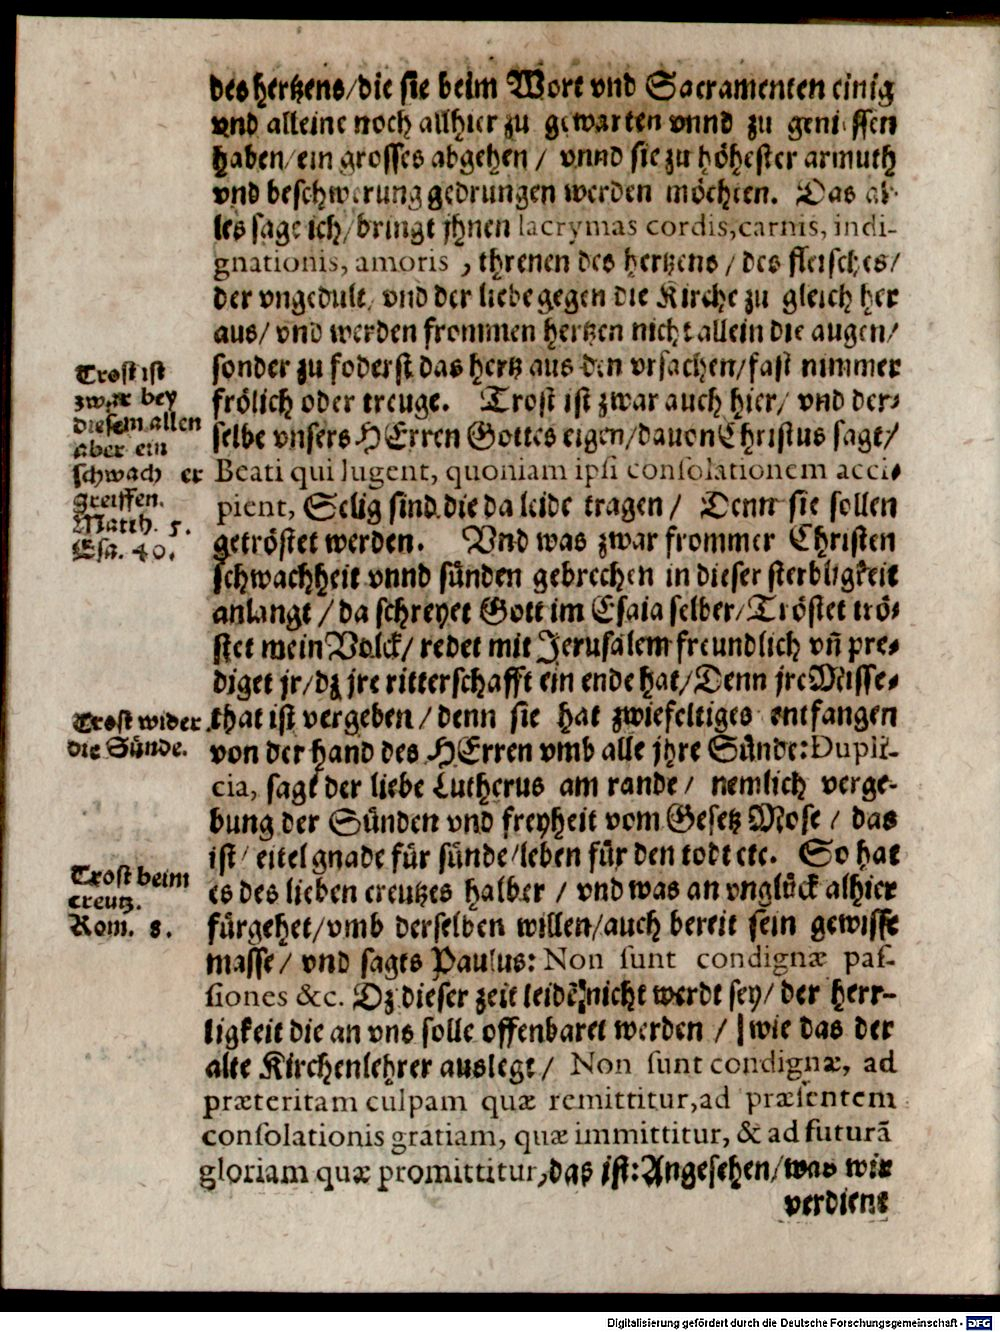 des hertzens/die sie beim Wort vnd Sacramenten einig
vnd alleine noch allhier zu gewarten vnnd zu geniessen
haben/ein grosses abgehen/ vnnd sie zu höhester armuth
vnd beschwerung gedrungen werden möchten. Das al-
les sage ich/bringt jhnen lacrymas cordis,carnis, indi-
gnationis, amoris , threnen des hertzens/des fleisches/
der vngedult/ vnd der liebe gegen die Kirche zu gleich her
aus/ vnd werden frommen hertzen nicht allein die augen/
sonder zu foderst das hertz aus den vrsachen/fast nimmer
Trost ist
zwar bey
diesem allen
aber ein
schwach er
greiffen.
Matth. 5.
Esa. 40.
frölich oder treuge. Trost ist zwar auch hier/ vnd der-
selbe vnsers HErren Gottes eigen/dauon Christus sagt/
Beati qui lugent, quoniam ipsi consolationem acci-
pient, Selig sind die da leide tragen/ Denn sie sollen
getröstet werden. Vnd was zwar frommer Christen
schwachheit vnnd sünden gebrechen in dieser sterbligkeit
anlangt/da schreyet Gott im Esaia selber/Tröstet trö-
stet mein Volck/ redet mit Jerusalem freundlich vñ pre-
diget jr/dz jre ritterschafft ein ende hat/Denn jre Misse-
Trost wider
die Sünde.
that ist vergeben/denn sie hat zwiefeltiges entfangen
von der hand des HErren vmb alle jhre Sünde:Dupli-
cia, sagt der liebe Lutherus am rande/ nemlich verge-
bung der Sünden vnd freyheit vom Gesetz Mose/ das
ist/ eitel gnade für sünde/leben für den todt etc. So hat
Trost beim
creutz.
Rom. 8.
es des lieben creutzes halber / vnd was an vnglück alhier
fürgehet/vmb derselben willen/auch bereit sein gewisse
masse/ vnd sagts Paulus: Non sunt condignæ pas-
siones &c. Dz dieser zeit leidē nicht werdt sey/ der herr-
ligkeit die an vns solle offenbaret werden / wie das der
alte Kirchenlehrer auslegt/ Non sunt condignæ, ad
præteritam culpam quæ remittitur,ad præsentem
consolationis gratiam, quæ immittitur, & ad futurā
gloriam quæ promittitur,das ist:Angesehen/was wir
verdient
Digitalisierung gefördert durch die Deutsche Forschungsgemeinschaft - DFG